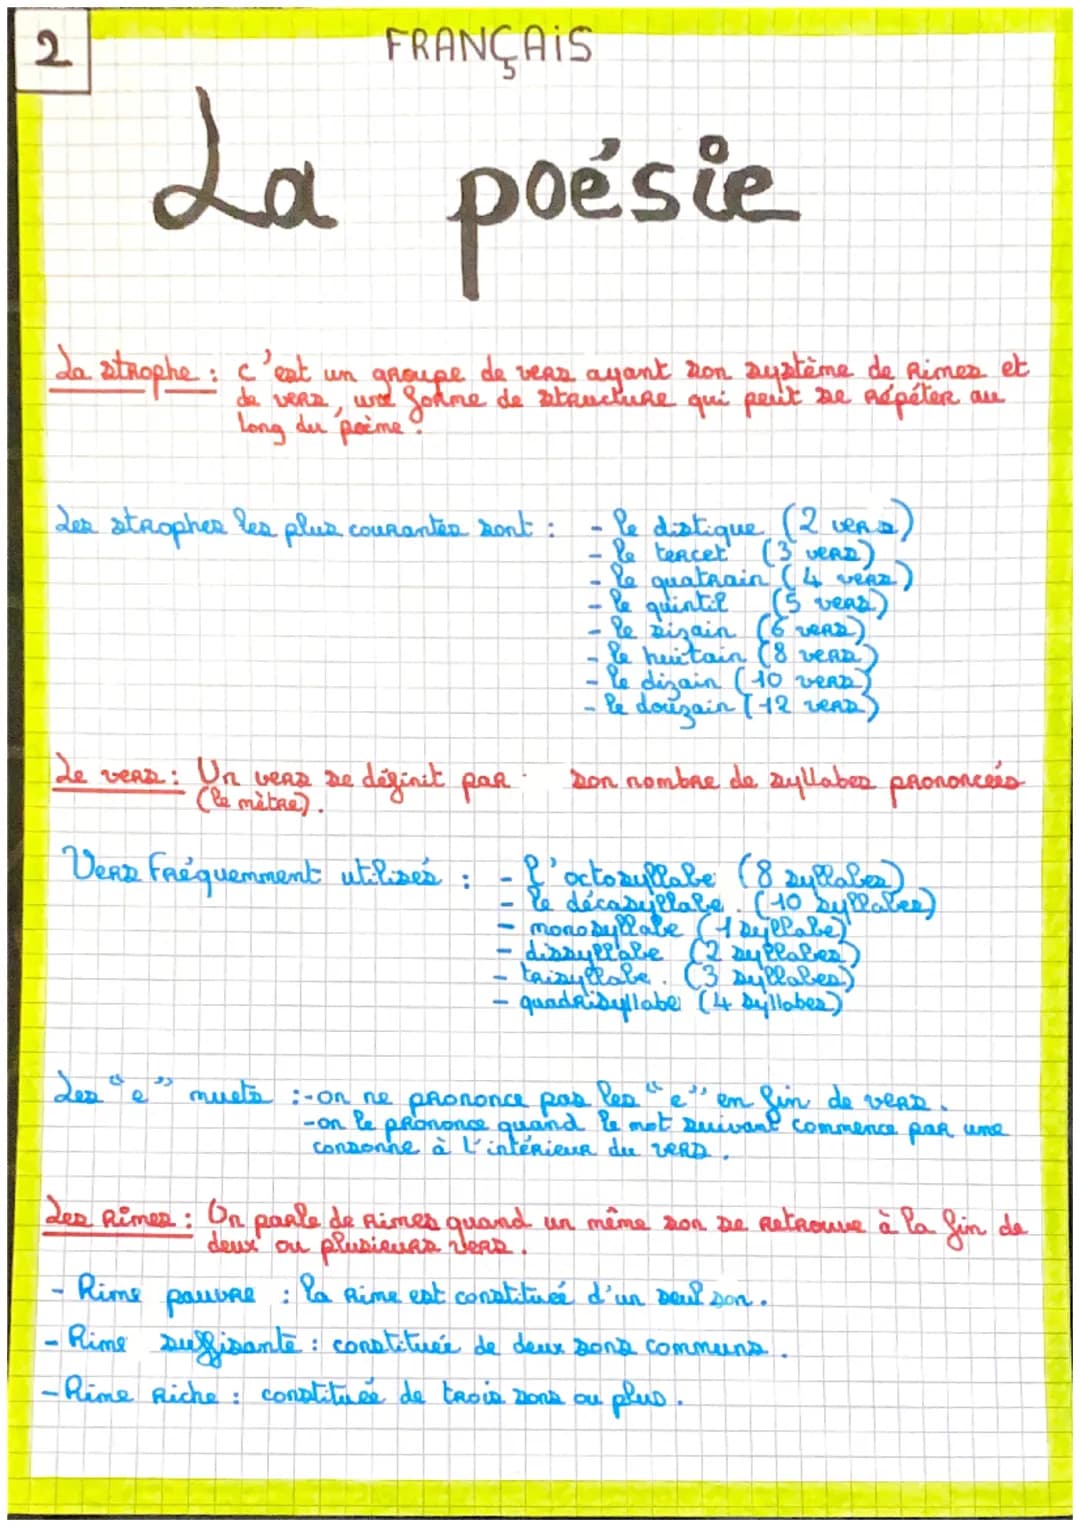 2
FRANÇAiS
La poésie
La strophe : c'est un groupe de vers ayant son système de rimes et
de vers, une forme de structure qui peut se répéter au
long du poème.
Les strophes les plus courantes sont : - le distique (2 vers)
- le tercet (3 vers)
- le quatrain (4 vers)
- le quintil (5 vers)
- le sizain (6 vers)
- le huitain (8 vers)
- le dizain (10 vers)
- le douzain (12 vers)
Le vers : Un vers se définit par son nombre de syllabes prononcées
(le mètre).
Vers fréquemment utilisés : - l'octosyllabe (8 syllabes)
- le décasyllabe (10 syllabes)
- monosyllabe (1 syllabe)
- dissyllabe (2 syllabes)
- trisyllabe. (3 syllabes)
- quadrisyllabe (4 syllabes)
Les "e" muets : - on ne prononce pas les "e" en fin de vers.
- on le prononce quand le mot suivant commence par une
consonne à l'intérieur du vers.
Les rimes : On parle de rimes quand un même son se retrouve à la fin de
deux ou plusieurs vers.
- Rime pauvre : la rime est constituée d'un seul son.
- Rime suffisante : constituée de deux sons communs.
- Rime riche : constituée de trois sons ou plus.